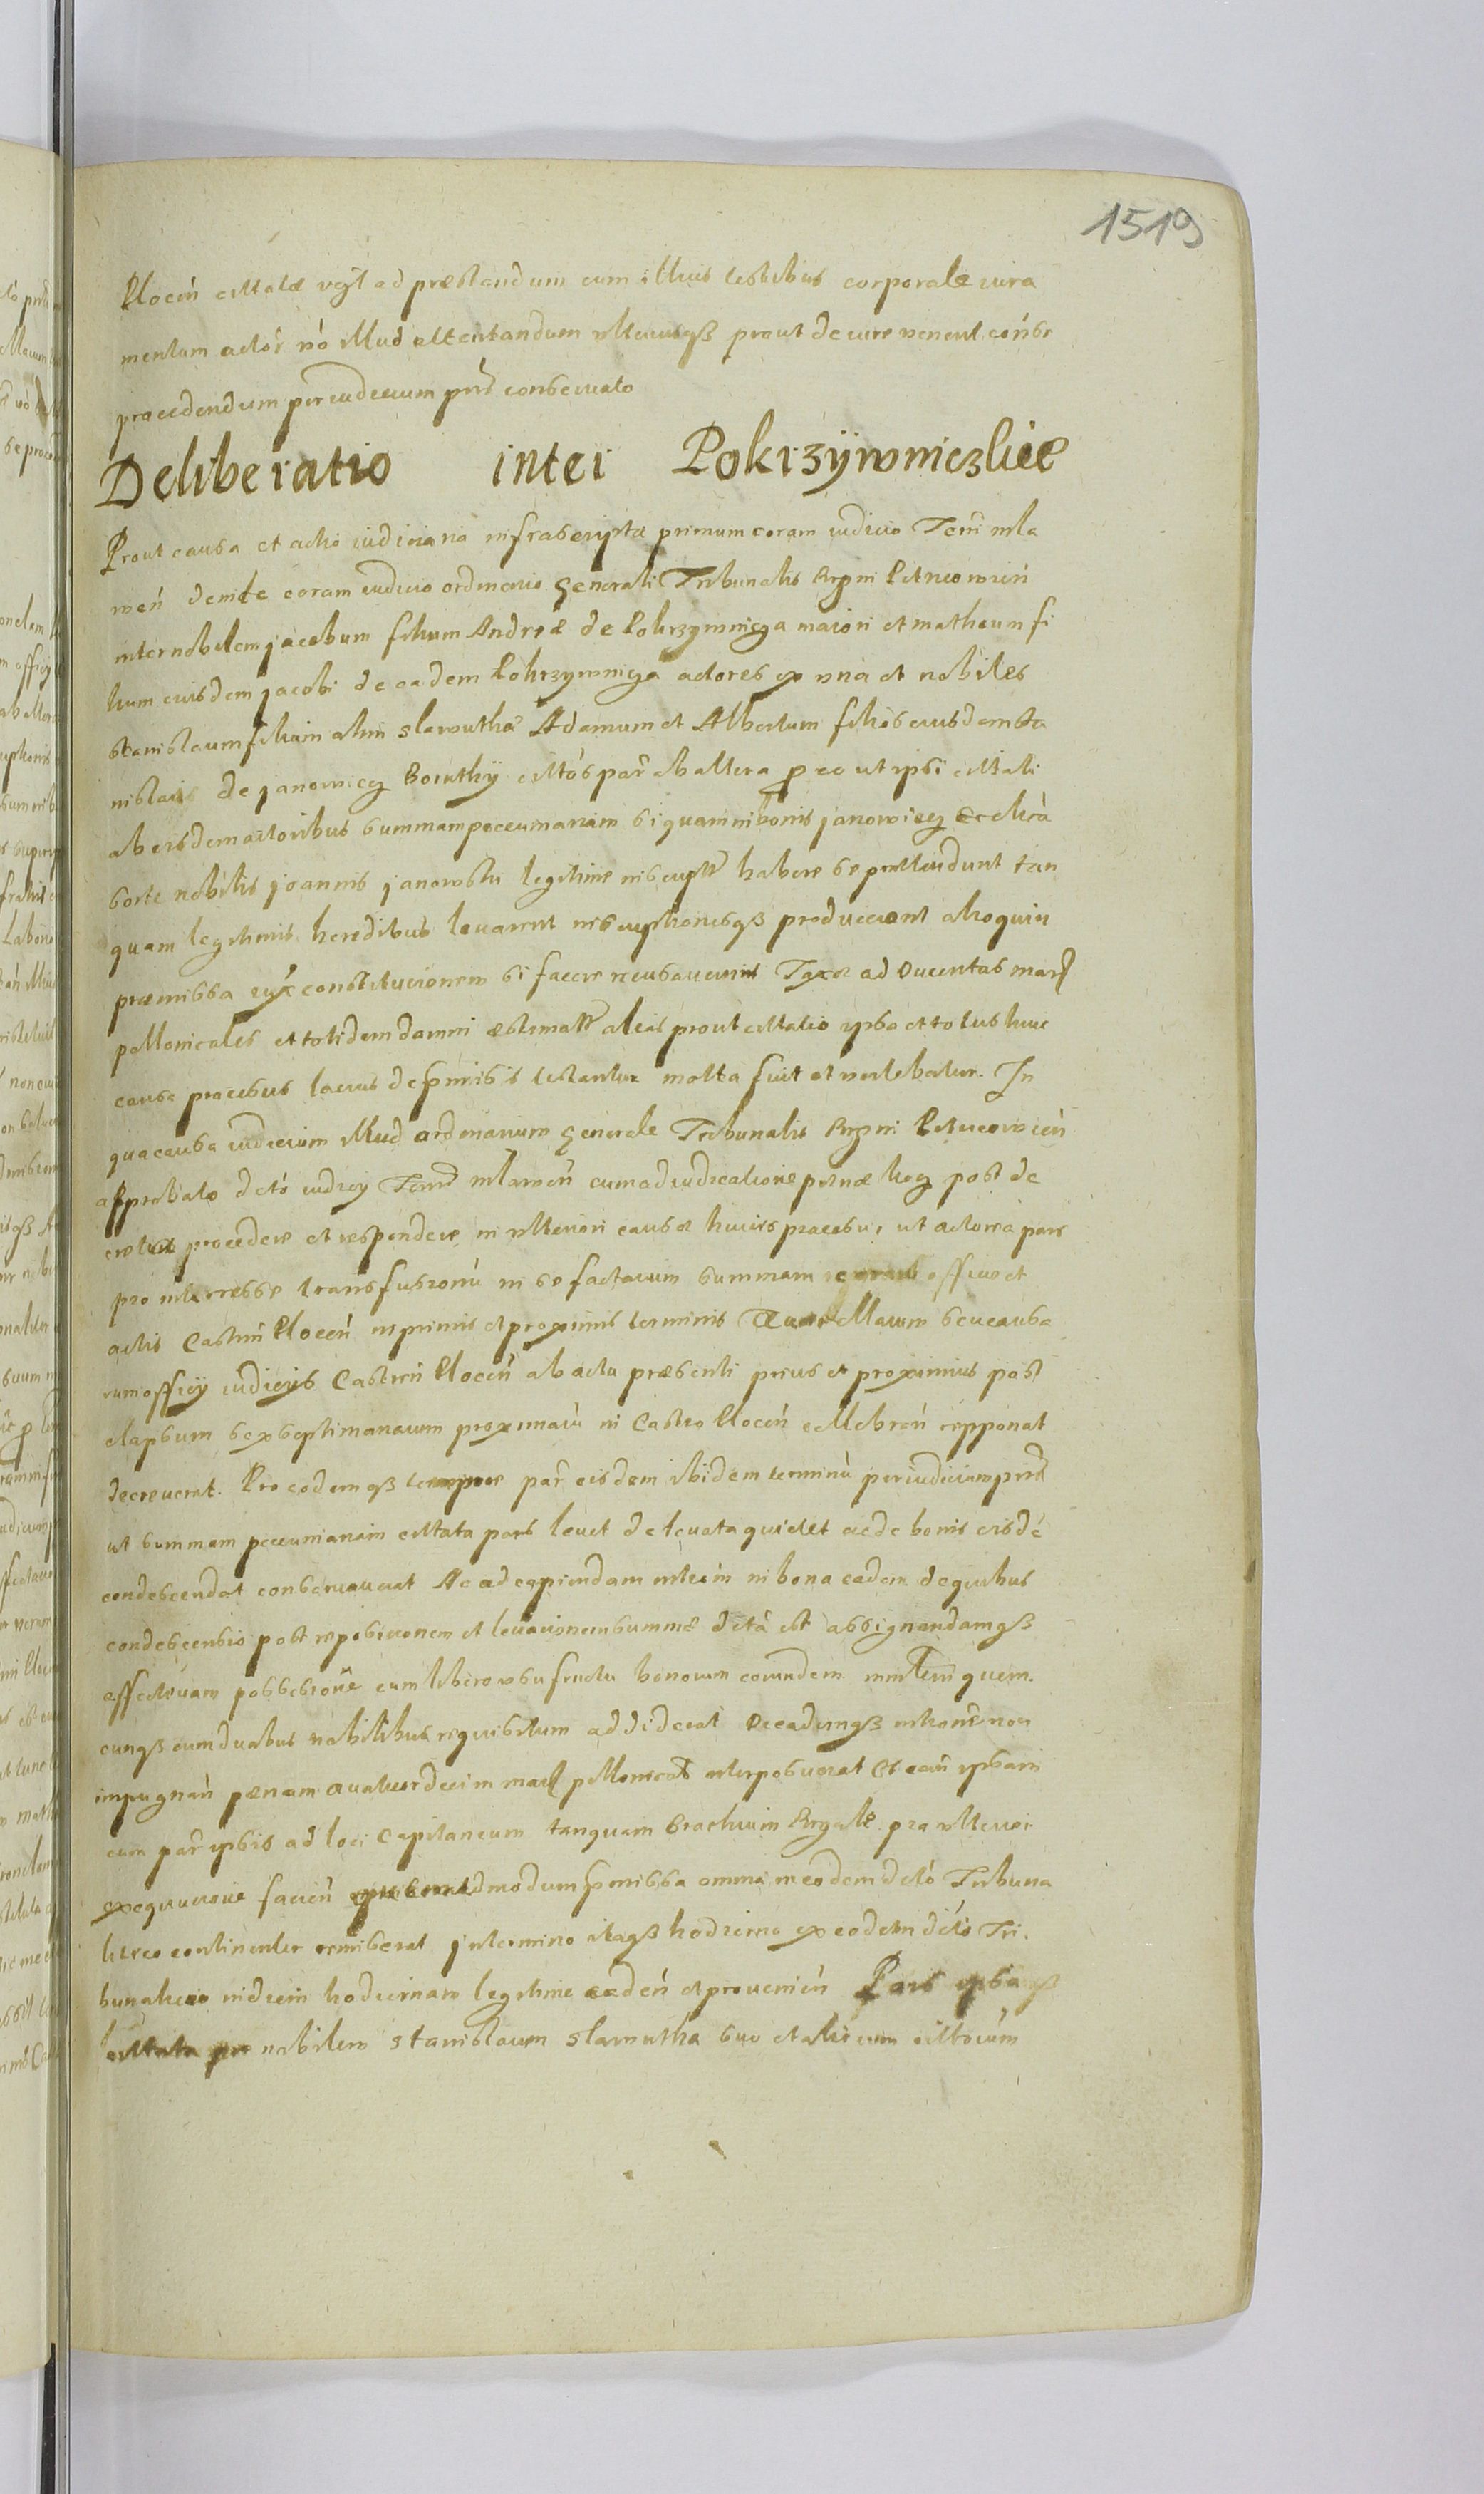 1519
Plocen̄ citatæ vigil ad præstandum cum illius testibus corporale iura
mentum actor̄ nō illud attentandum ulteriusqß prout de iure venerit
procedendum per iudicium pn̄ti conservato
Deliberatio inter Pokrzÿwniczkie
Prout causa et actio iudiciaria infrascripta primum coram iudicio Terri mla
wen̄ deinde coram iudicio ordinario generali Tribunalis Regni Petricowien̄
inter nobilem jacobum filium Andreæ de Pokrzywnicza maiori et matheum fi
lium eiusdem jacobi de eadem Pokrzywnicza actores ex una et nobiles
stanislaum filium olim slawutha Adamum et Albertum filios eiusdem sta
nislai de janowiecz Boruthÿ citatos par̄ ab altera pro eo ut ipsi citati
ab eisdem actoribus summam pecuniariam si quam in bonis janowiecz
sorte nobilis joannis janowski legitime inscript habere se prætendunt tan
quam legitimis heredibus levarent inscriptionesqß producerent alioquin
præmissa constitucionem si facere recusaverint ad ducentas marc
pollonicales et totidem damni æstimatt alias prout citatio ypsa et totus huic
causæ processus lacius de præmissis testantur mota fuit et vertebatur. In
qua causa iudicium illud ordinarium generale Tribunalis Regni Petricowien̄
approbato decto iudicy Terri mlawen̄ cum adiudicatione pœnæ post de
cretum procedere et respondere in ulteriori causæ huius processu, ut actorea pars
pro interesse transfusionū in se factarum summam officio et
actis Castren̄ Plocen̄ in primis et proximis terminis Querellarum seu causa
rum officÿ iudicÿs Castren̄ Plocen̄ ab actu præsenti prius et proximius post
elapsum sex septimanarum proximarū in Castro Plocen̄ celebran̄ repponat
decreverat. Pro eodemqß tempore par̄ eisdem ibidem terminū per iudicium pn̄ti
ut summam pecuniariam citata pars levet de levata quietet ac de bonis eisdē
condescendat conservaverat Ac ad capiendam in bona eadem de quibus
condescensio post repositionem et levacionem summæ dctā est assignandamqß
effectivam possessionē cum libero usufructu bonorum eorundem ministerialem quem.
cunqß cum duabus nobilibus requisitum addiderat Decadimqß intromissionem non
impugnan̄ pœnam quatuordecim marc pollonicat interposuerat Et eam ypsam
cum par ypsis ad loci Capitaneum tanquam brachium Regale pro ulteriori
exequucione facien̄ quemadmodum præmissa omnia in eodem dcto Tribuna
continentur remiserat jn termino itaqß hodierno ex eodem dcto Tri.
bunalicio in diem hodiernam legitime caden̄ et provenien̄ Pars ypsaqß
citata per nobilem stanislaum slawutha suo et aliorum citatorum